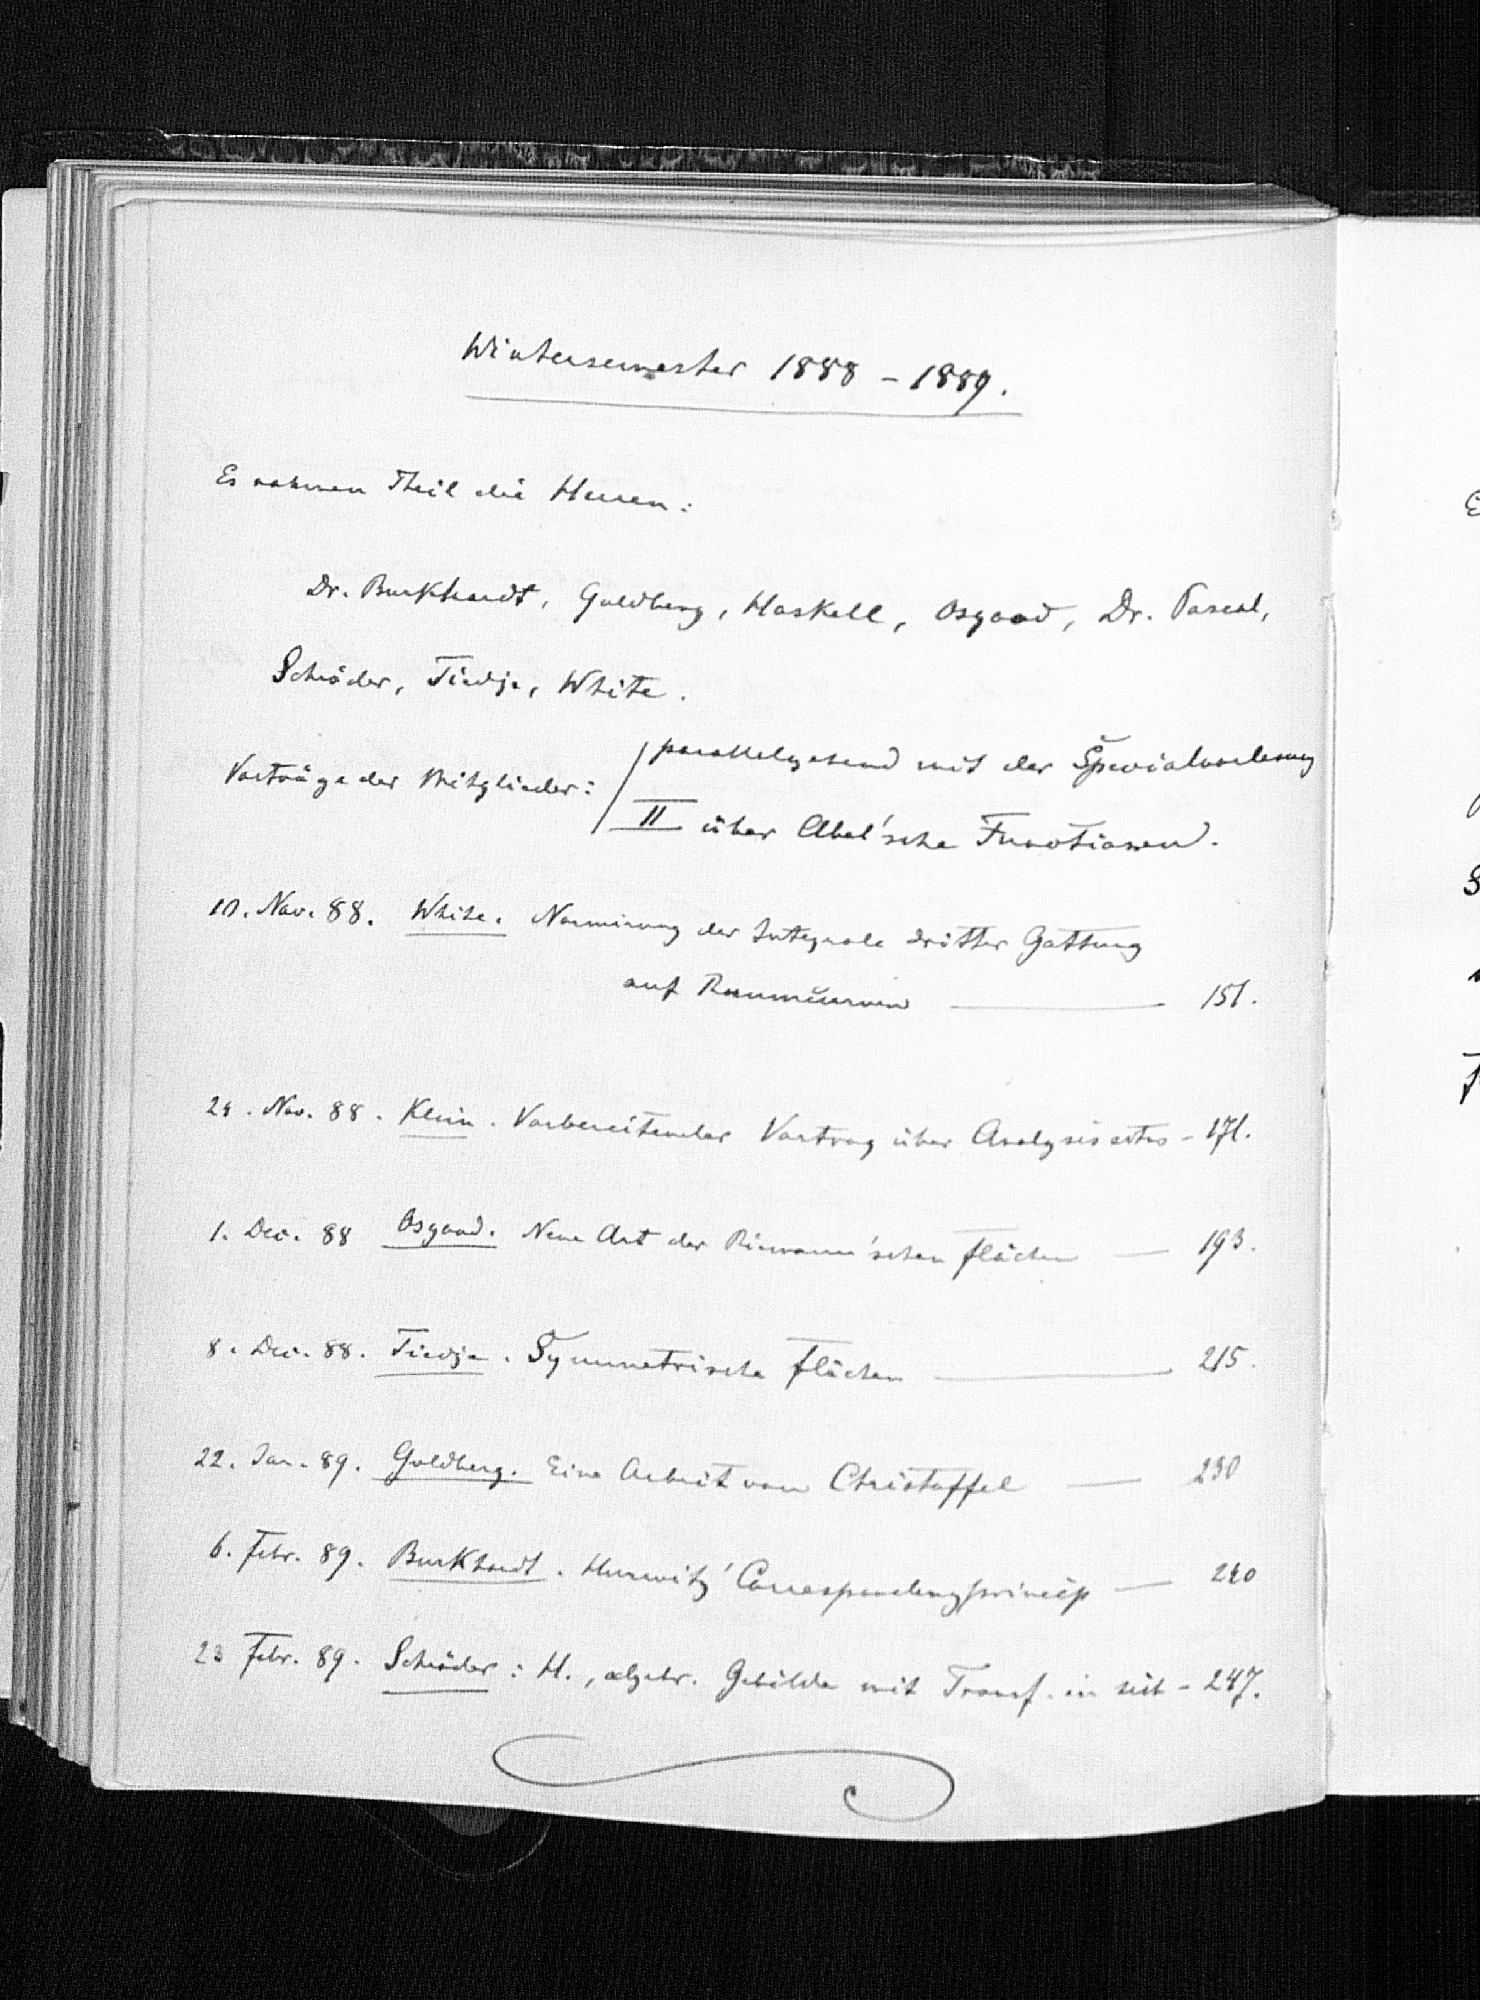 Wintersemester 1888 - 1889.
Es nahmen Theil die Herren:
Dr. Burkhardt, Goldberg, Haskell, Osgood, Dr. Pascal,
Schröder, Tiedje, White.
Vorträge der Mitglieder: parallelgehend mit der Specialvorlesung
II über Abel'sche Functionen.
10. Nov. 88. White. Normirung der Integrale dritter Gattung
auf Raumcurven — 151.
24. Nov. 88. Klein. Vorbereitender Vortrag über Analysis situs - 171.
1. Dec. 88 Osgood. Neue Art der Riemann'schen Flächen — 193.
8. Dec. 88. Tiedje. Symmetrische Flächen — 215.
22. Jan. 89. Goldberg. Eine Arbeit von Christoffel — 230
6. Febr. 89. Burkhardt. Hurwitz' Correspondenzprincip — 240
23 Febr. 89. Schröder: H., algebr. Gebilde mit Transf. in sich - 247.